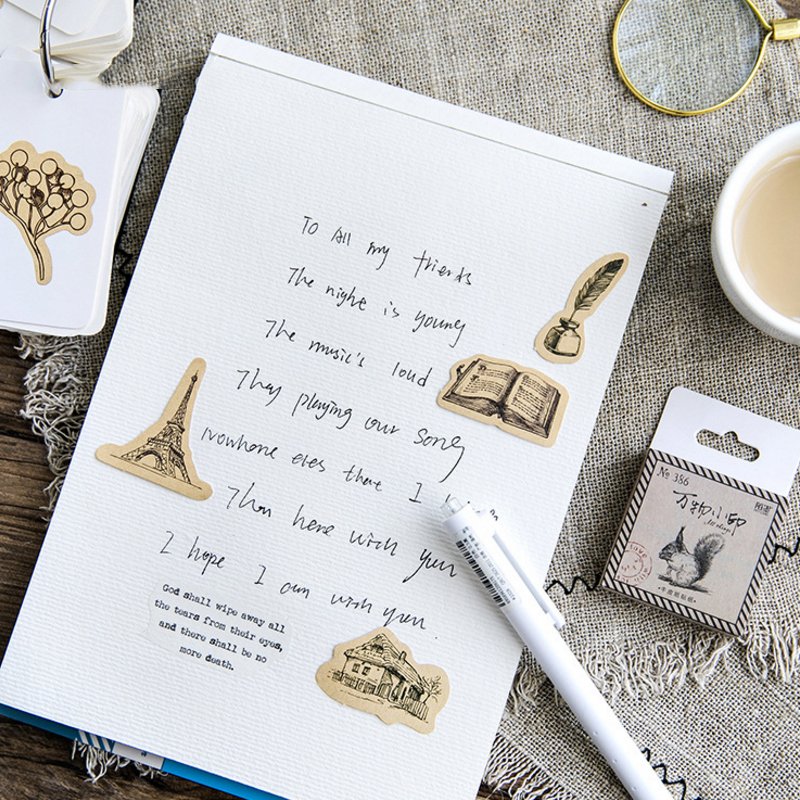 To All my friends
The night is young
The music's loud
They playing our song
Nowhere eles there I
Than here with you
I hope I am with you.
God shall wipe away all
the tears from their eyes,
and there shall be no
more death.
No 386
万物小印